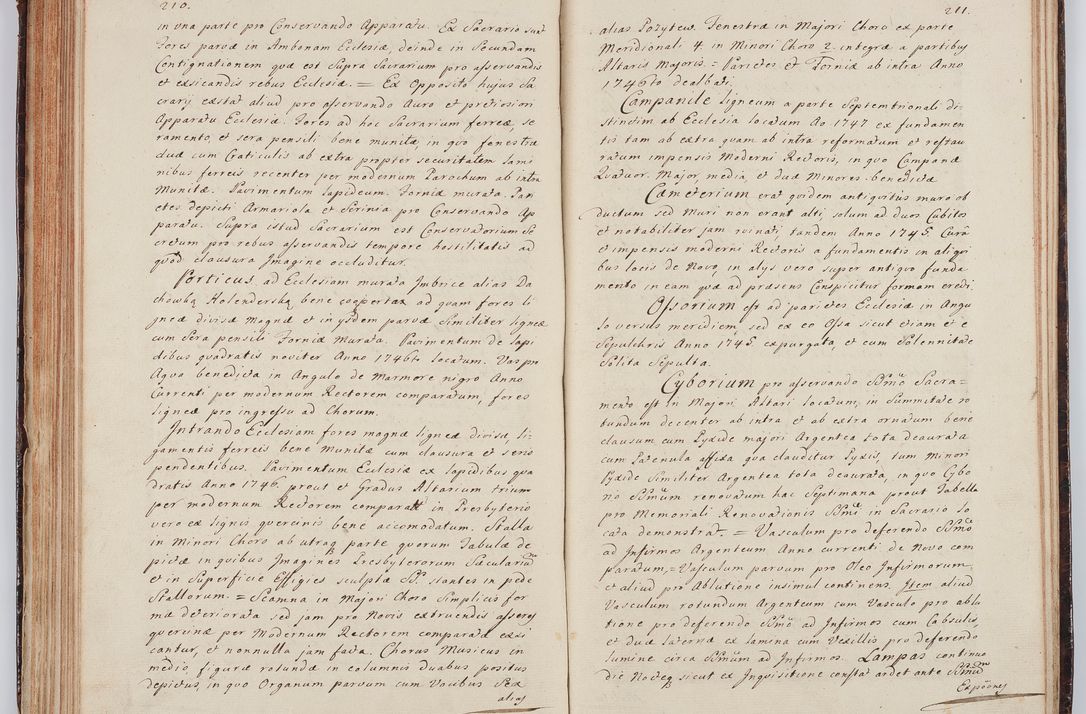 210.
in una parte pro Conservando Apparatu. Ex Sacrario sunt
Fores parvæ in Ambonam Ecclesiæ, deinde in Secundam
Contignationem quæ est supra Sacrarium pro asservandis
et exsicandis rebus Ecclesiæ. = Ex Opposito hujus Sa
crarij exstat aliud pro asservando Auro et pretiosiori
Apparatu Ecclesiæ. Fores ad hoc Sacrarium ferreæ, se
ramento, et sera pensili bene munitæ, in quo fenestræ
duæ cum Craticulis ab extra propter securitatem lami
nibus ferreis recenter per modernum Parochum ab intra
Munitæ. Pavimentum lapideum. Forniæ murata Pari
etes depicti Armariola et Scrinia pro Conservando Ap
paratu. Supra istud Sacrarium est Conservatorium Se
cretum pro rebus asservandis tempore hostilitatis ad
quod clausura Imagine occluditur.
Porticus ad Ecclesiam murata Imbrice alias Da
chowką Holenderską bene coopertaæ ad quam fores li
gneæ divisæ Magnæ et in ijsdem parvæ Similiter ligneæ
cum Sera pensili Forniæ Murata. Pavimentum de lapi
dibus quadratis noviter Anno 1746to locatum. Vas pro
Aqua benedicta in Angulo de Marmore nigro Anno
Currenti per modernum Rectorem comparatum, fores
ligneæ pro ingressu ad Chorum.
Intrando Ecclesiam fores magnæ ligneæ divisæ, li
gamentis ferreis bene Munitæ cum clausura et seris
pendentibus. Pavimentum Ecclesiæ ex lapidibus qua
dratis Anno 1746. prout et Gradus Altarium trium
per modernum Rectorem comparatt in Presbyterio
vero ex lignis quercinis bene accomodatum. Stalla
in Minori Choro ab utraq parte quorum Tabulæ de
pictæ in quibus Imagines Presbyterorum Sæcularium
et in Superficie Effigies sculptæ SS. stantes in pede
Stallorum. = Scamna in Majori Choro Simplicis for
mæ deteriorata sed jam pro Novis extruendis asseres
quercinæ per Modernum Rectorem comparatæ exsi
cantur, et nonnulla jam facta. Chorus Musicus in
medio, figuræ rotundæ in columnis duabus positus
depictus, in quo Organum parvum cum Vocibus Sex
alias
211.
alias Pozytew. Fenestræ in Majori Choro ex parte
Meridionali 4. in Minori Choro 2. integræ a partibus
Altaris Majoris. = Parietes et Forniæ ab intra Anno
1746to dealbati.
Campanile ligneum a parte Septemtrionali di
stinctim ab Ecclesia locatum Ao 1747 ex fundamen
tis tam ab extra quam ab intra reformatum et restau
ratum impensis Moderni Rectoris, in quo Campanæ
Quatuor. Major, media, et duæ Minores. benedictæ.
Cæmeterium erat quidem antiquitus muro ob
ductum sed Muri non erant alti, solum ad duos Cubitos
et notabiliter jam ruinati, tandem Anno 1745 Cura
et impensis moderni Rectoris a fundamentis in aliqui
bus locis de Novo, in alys vero super antiquo funda
mento in eam quæ ad præsens Conspicitur formam erecti.
Ossorium est ad parietes Ecclesiæ in Angu
lo versus meridiem, sed ex eo Ossa sicut etiam et e
Sepulchris Anno 1745. expurgata, et cum Solennitate
Solita Sepulta.
Cyborium pro asservando SSmo Sacra=
mento est in Majori Altari locatum, in Summitate ro
tundum decenter ab intra et ab extra ornatum bene
clausum cum Pyxide majori Argentea tota deaurata
cum Catenula affixa qua clauditur Pyxis, tum Minori
Pyxide Similiter Argentea tota deaurata, in quo Cybo
rio SSmum renovatum hac Septimana prout Tabella
pro Memoriali Renovationis SSmi in Sacrario lo
cata demonstrat. = Vasculum pro deferendo SSmo
ad Infirmos Argenteum Anno currenti de Novo com
paratum, = Vasculum parvum pro Oleo Infirmorum,
et aliud pro Ablutione insimul continens. Item aliud
Vasculum rotundum Argenteum cum Vasculo pro ablu
tione pro deferendo SSmo ad Infirmos cum Capsulis,
et duæ laternæ ex lamina cum Vexillis pro deferendo
lumine circa SSmum ad Infirmos. Lampas continuo
die Nocteq sicut ex Inquisitione constat ardet ante SSmum